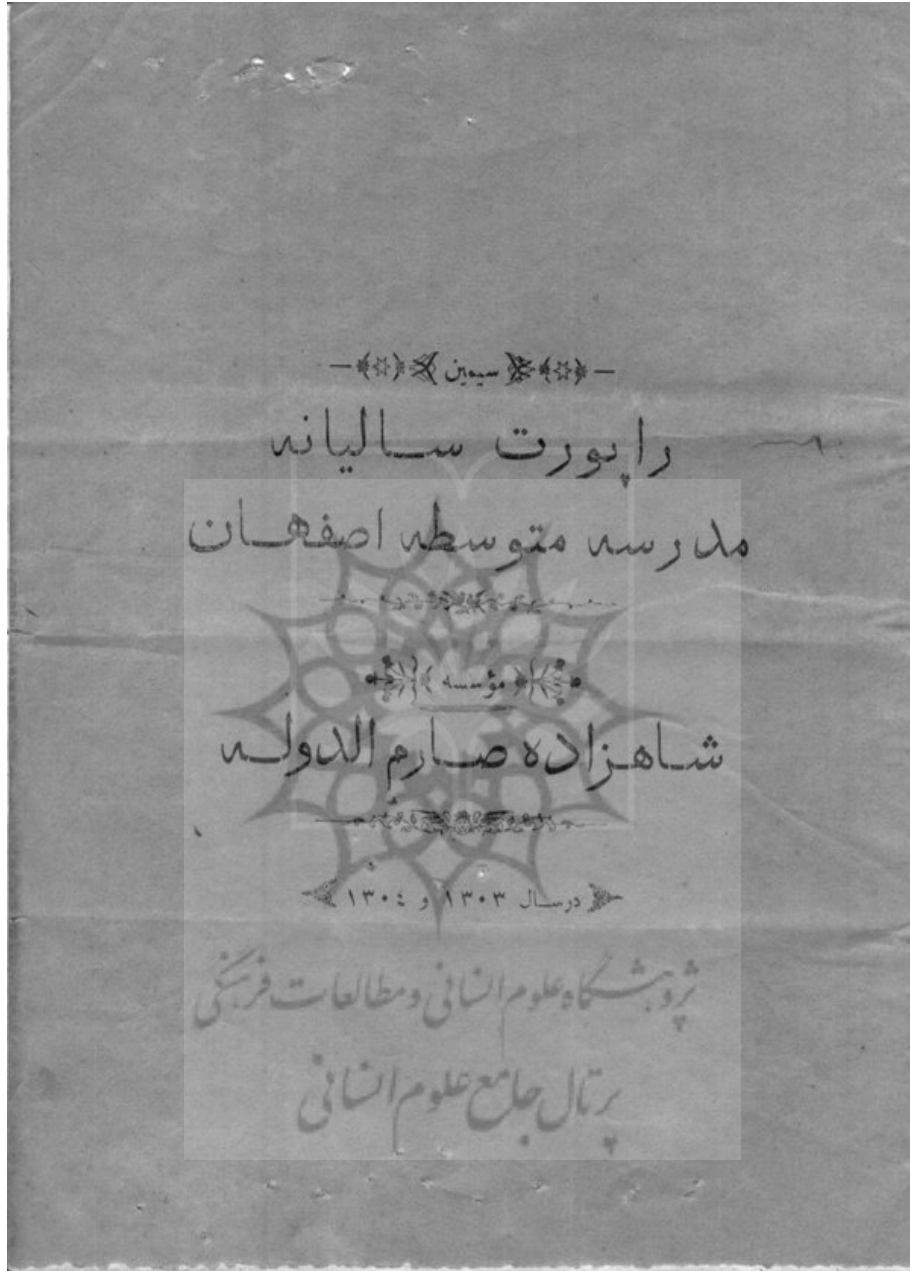 سیمین
راپورت سالیانه
مدرسه متوسطه اصفهان
مؤسسه
شاهزاده صارم الدوله
در سال ۱۳۰۳ و ۱۳۰٤
پژوهشگاه علوم انسانی و مطالعات فرهنگی
پرتال جامع علوم انسانی